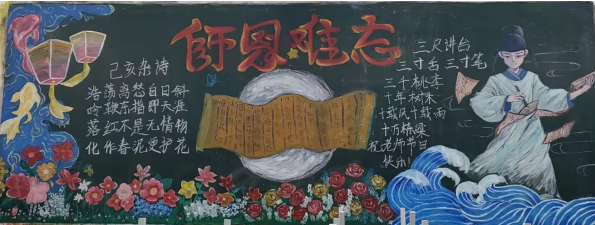 师恩难忘
己亥杂诗
浩荡离愁白日斜
吟鞭东指即天涯
落红不是无情物
化作春泥更护花
三尺讲台
三寸舌 三寸笔
三千桃李
十年树木
十载风十载雨
十万栋梁
祝老师节日
快乐!